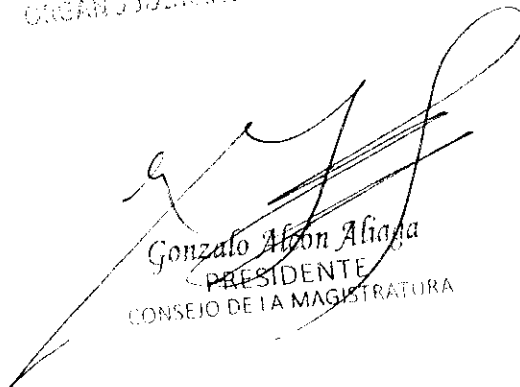 Gonzalo Alcon Aliaga
PRESIDENTE
CONSEJO DE LA MAGISTRATURA